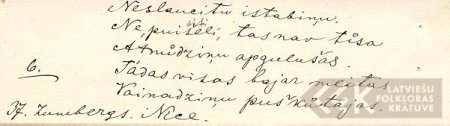 Neslaucitu istabiņu.
Ne, puišeli, tas nav tìsa
Atmûdziņu apgulušas.
6. Tádas visas bajar meitas
Vainadziņu puškûtájas.
H. Zumbergs. Nice.
LATVIEŠU
FOLKLORAS
KRĀTUVE